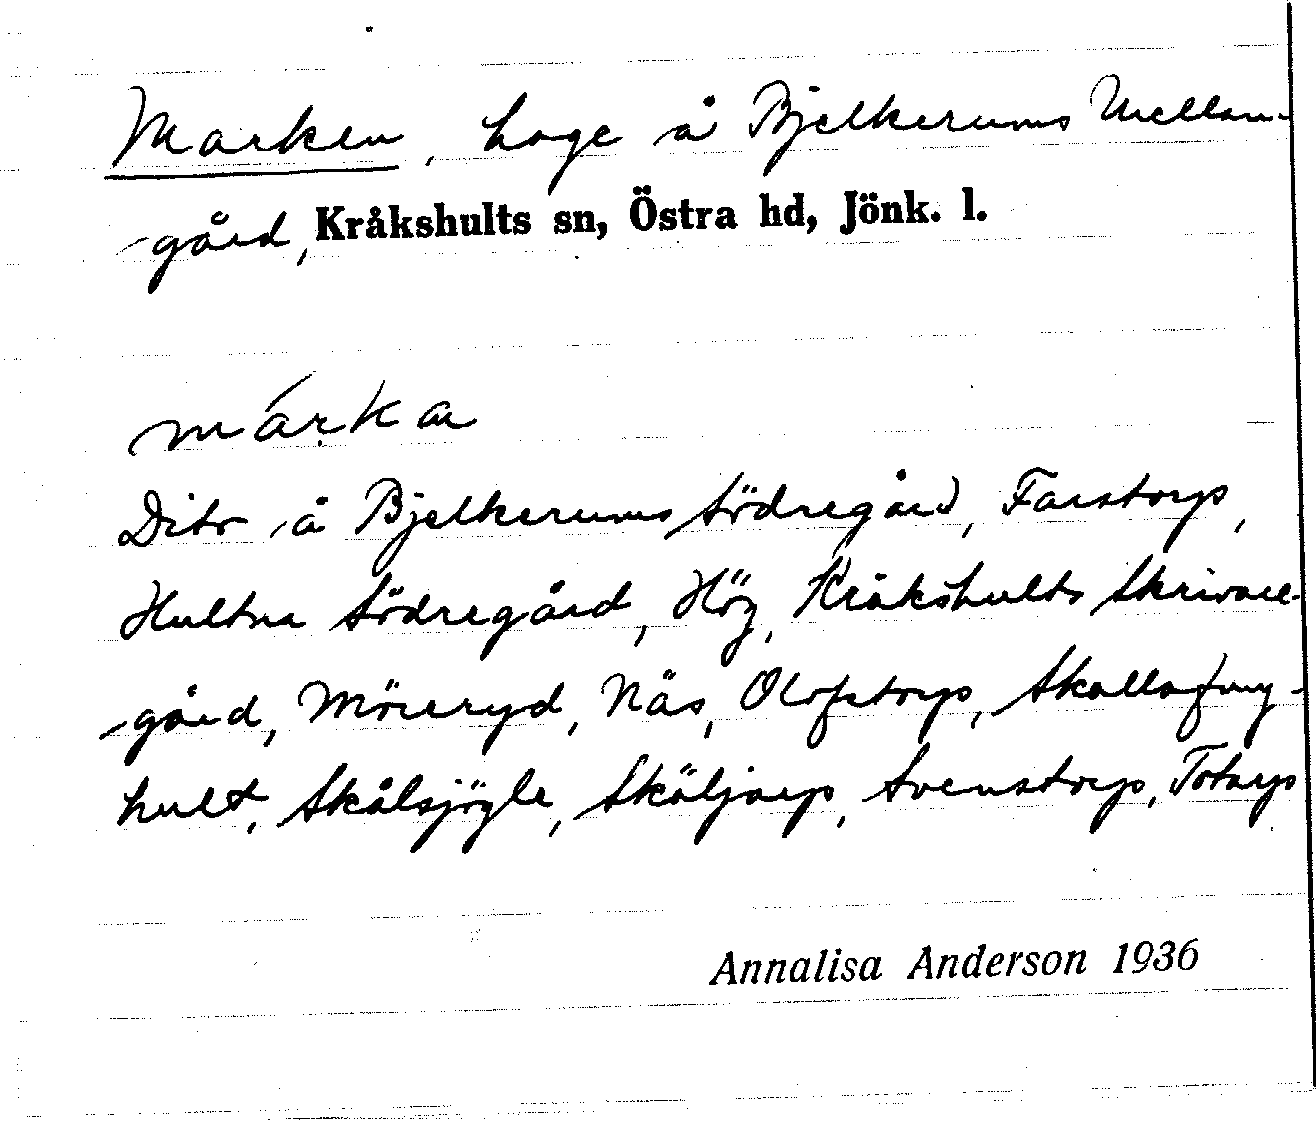 Marken, hage å Bjelkerums Mellan-
gård, Kråkshults sn, Östra hd, Jönk. l.
márka
Dito å Bjelkerums Södregård, Farstorp,
Hultna Södregård, Hög, Kråkshults Skrivare-
gård, Möreryd, Näs, Olofstorp, Skallafang-
hult, Skålsjögle, Sköljarp, Svenstorp, Totarp
Annalisa Anderson 1936